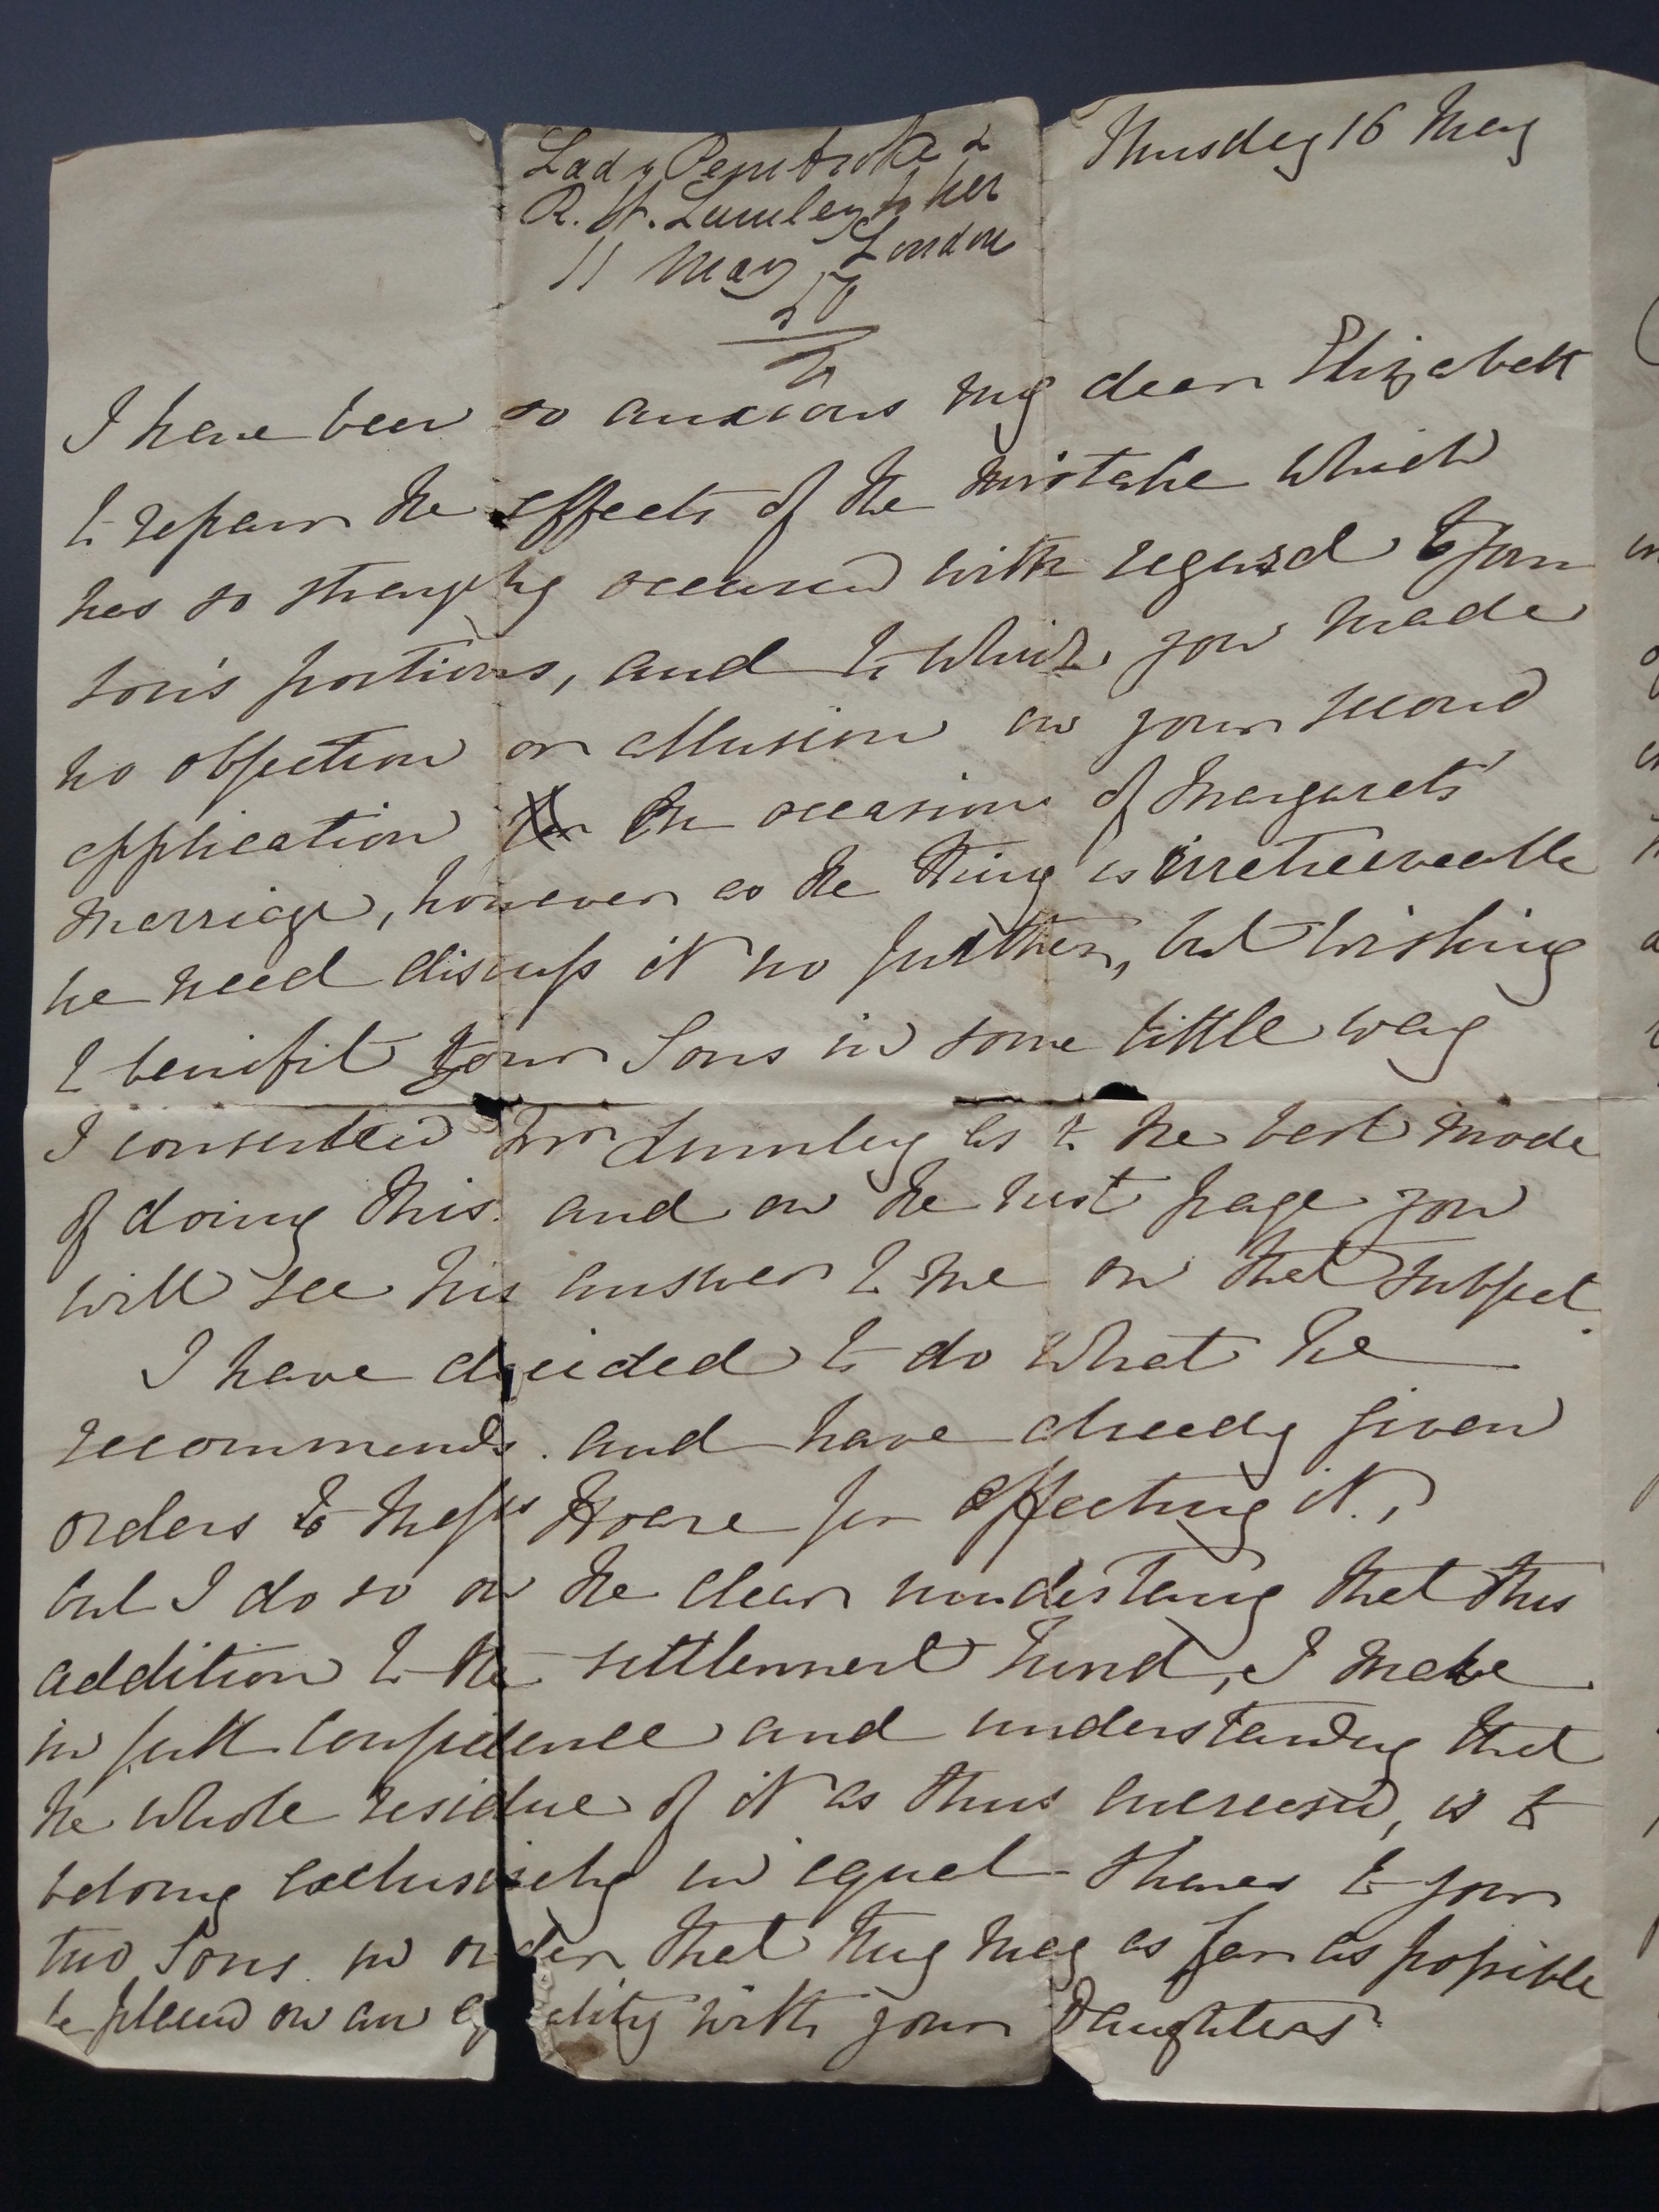 Thursday 16 May
Lady Pembroke &
R. H. Lumley to her
London
11 May 50
I have been so anxious my dear Elizabeth
to repair the effects of the mistake which
has so strangely occurred with regard to your
son's portions, and to which you made
no objection or allusion in your second
application on the occasion of Margaret's
marriage, however as the thing is irretrieveable
we need discuss it no further, but wishing
to benifit your Sons in some little way
I consulted Mr Lumley as to the best mode
of doing this. and on the next page you
will see his answer to me on that subject.
I have decided to do what he
recommends. and have already given
orders to Messrs Hoare for effecting it,
but I do so on the clear understang that this
addition to the settlement fund, I make
in full confidence and understanding that
the whole residue of it as thus increased, is to
belong exclusively in equal shares to your
two Sons. in order that they may as far as possible
be placed on an equality with your Daughters